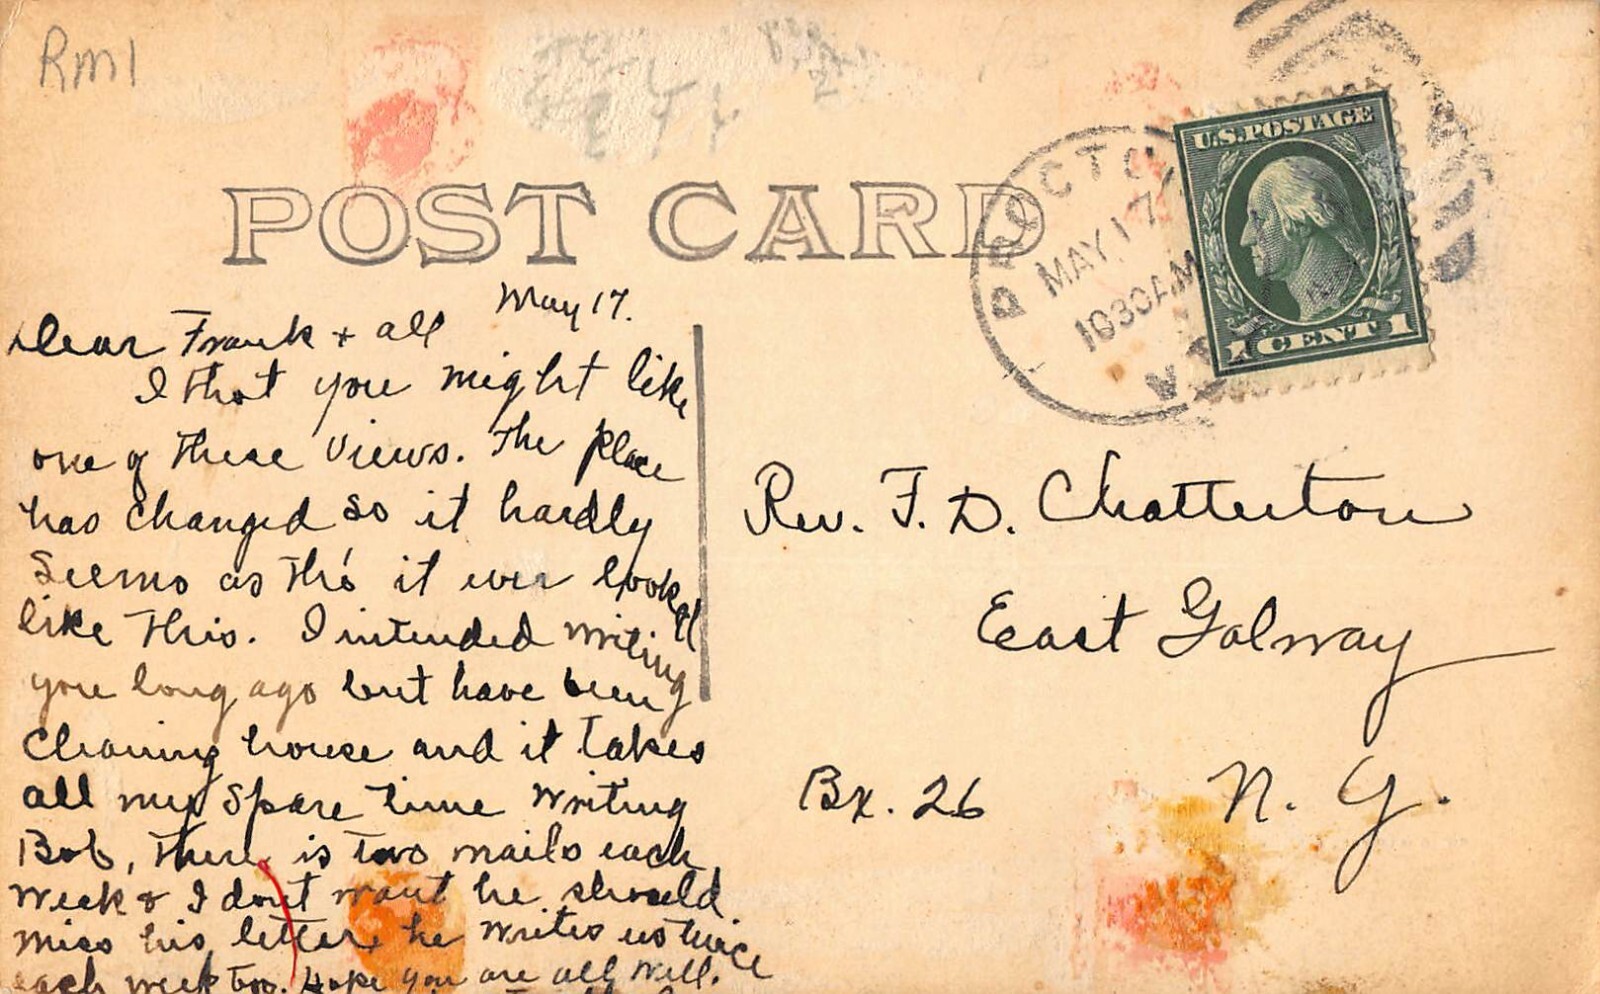 Rm1
POST CARD
PROCTO
MAY 17
1030 AM
U.S. POSTAGE
1 CENT 1
May 17.
Dear Frank + all
I that you might like
one of these views. The place
has changed so it hardly
seems as tho' it ever looked
like this. I intended writing
you long ago but have been
cleaning house and it takes
all my spare time writing
Bob, there is two mails each
week & I don't want he should
miss his letters he writes us twice
each week too. Hope you are all well.
Rev. F. D. Chatterton
East Galway
Bx. 26 N. Y.